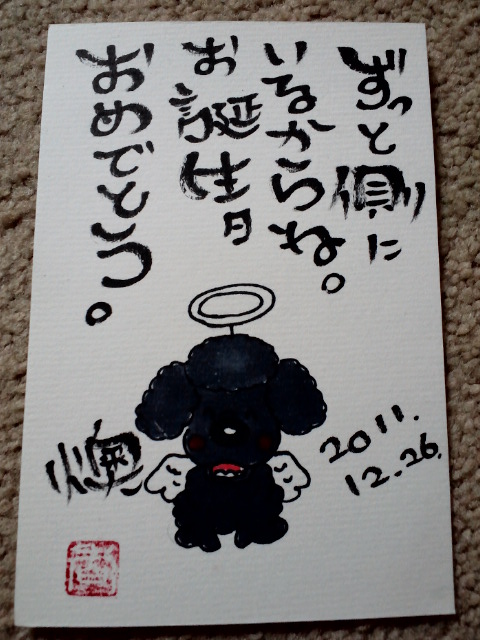 ずっと側に
いるからね。
お誕生日
おめでとう。
2011.
12.26.